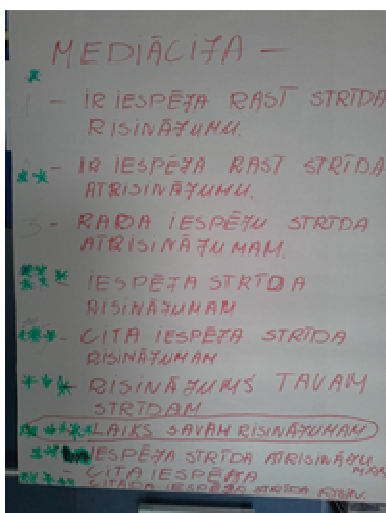 MEDIĀCIJA –
1 - IR IESPĒJA RAST STRĪDA
RISINĀJUMU.
- IR IESPĒJA RAST STRĪDA
ATRISINĀJUMU.
3 - RADA IESPĒJU STRĪDA
ATRISINĀJUMAM.
IESPĒJA STRĪDA
RISINĀJUMAM
- CITA IESPĒJA STRĪDA
RISINĀJUMAM
- RISINĀJUMS TAVAM
STRĪDAM
LAIKS SAVAM RISINĀJUMAM
IESPĒJA STRĪDA ATRISINĀJUMAM
- CITA IESPĒJA
IESPĒJA STRĪDA